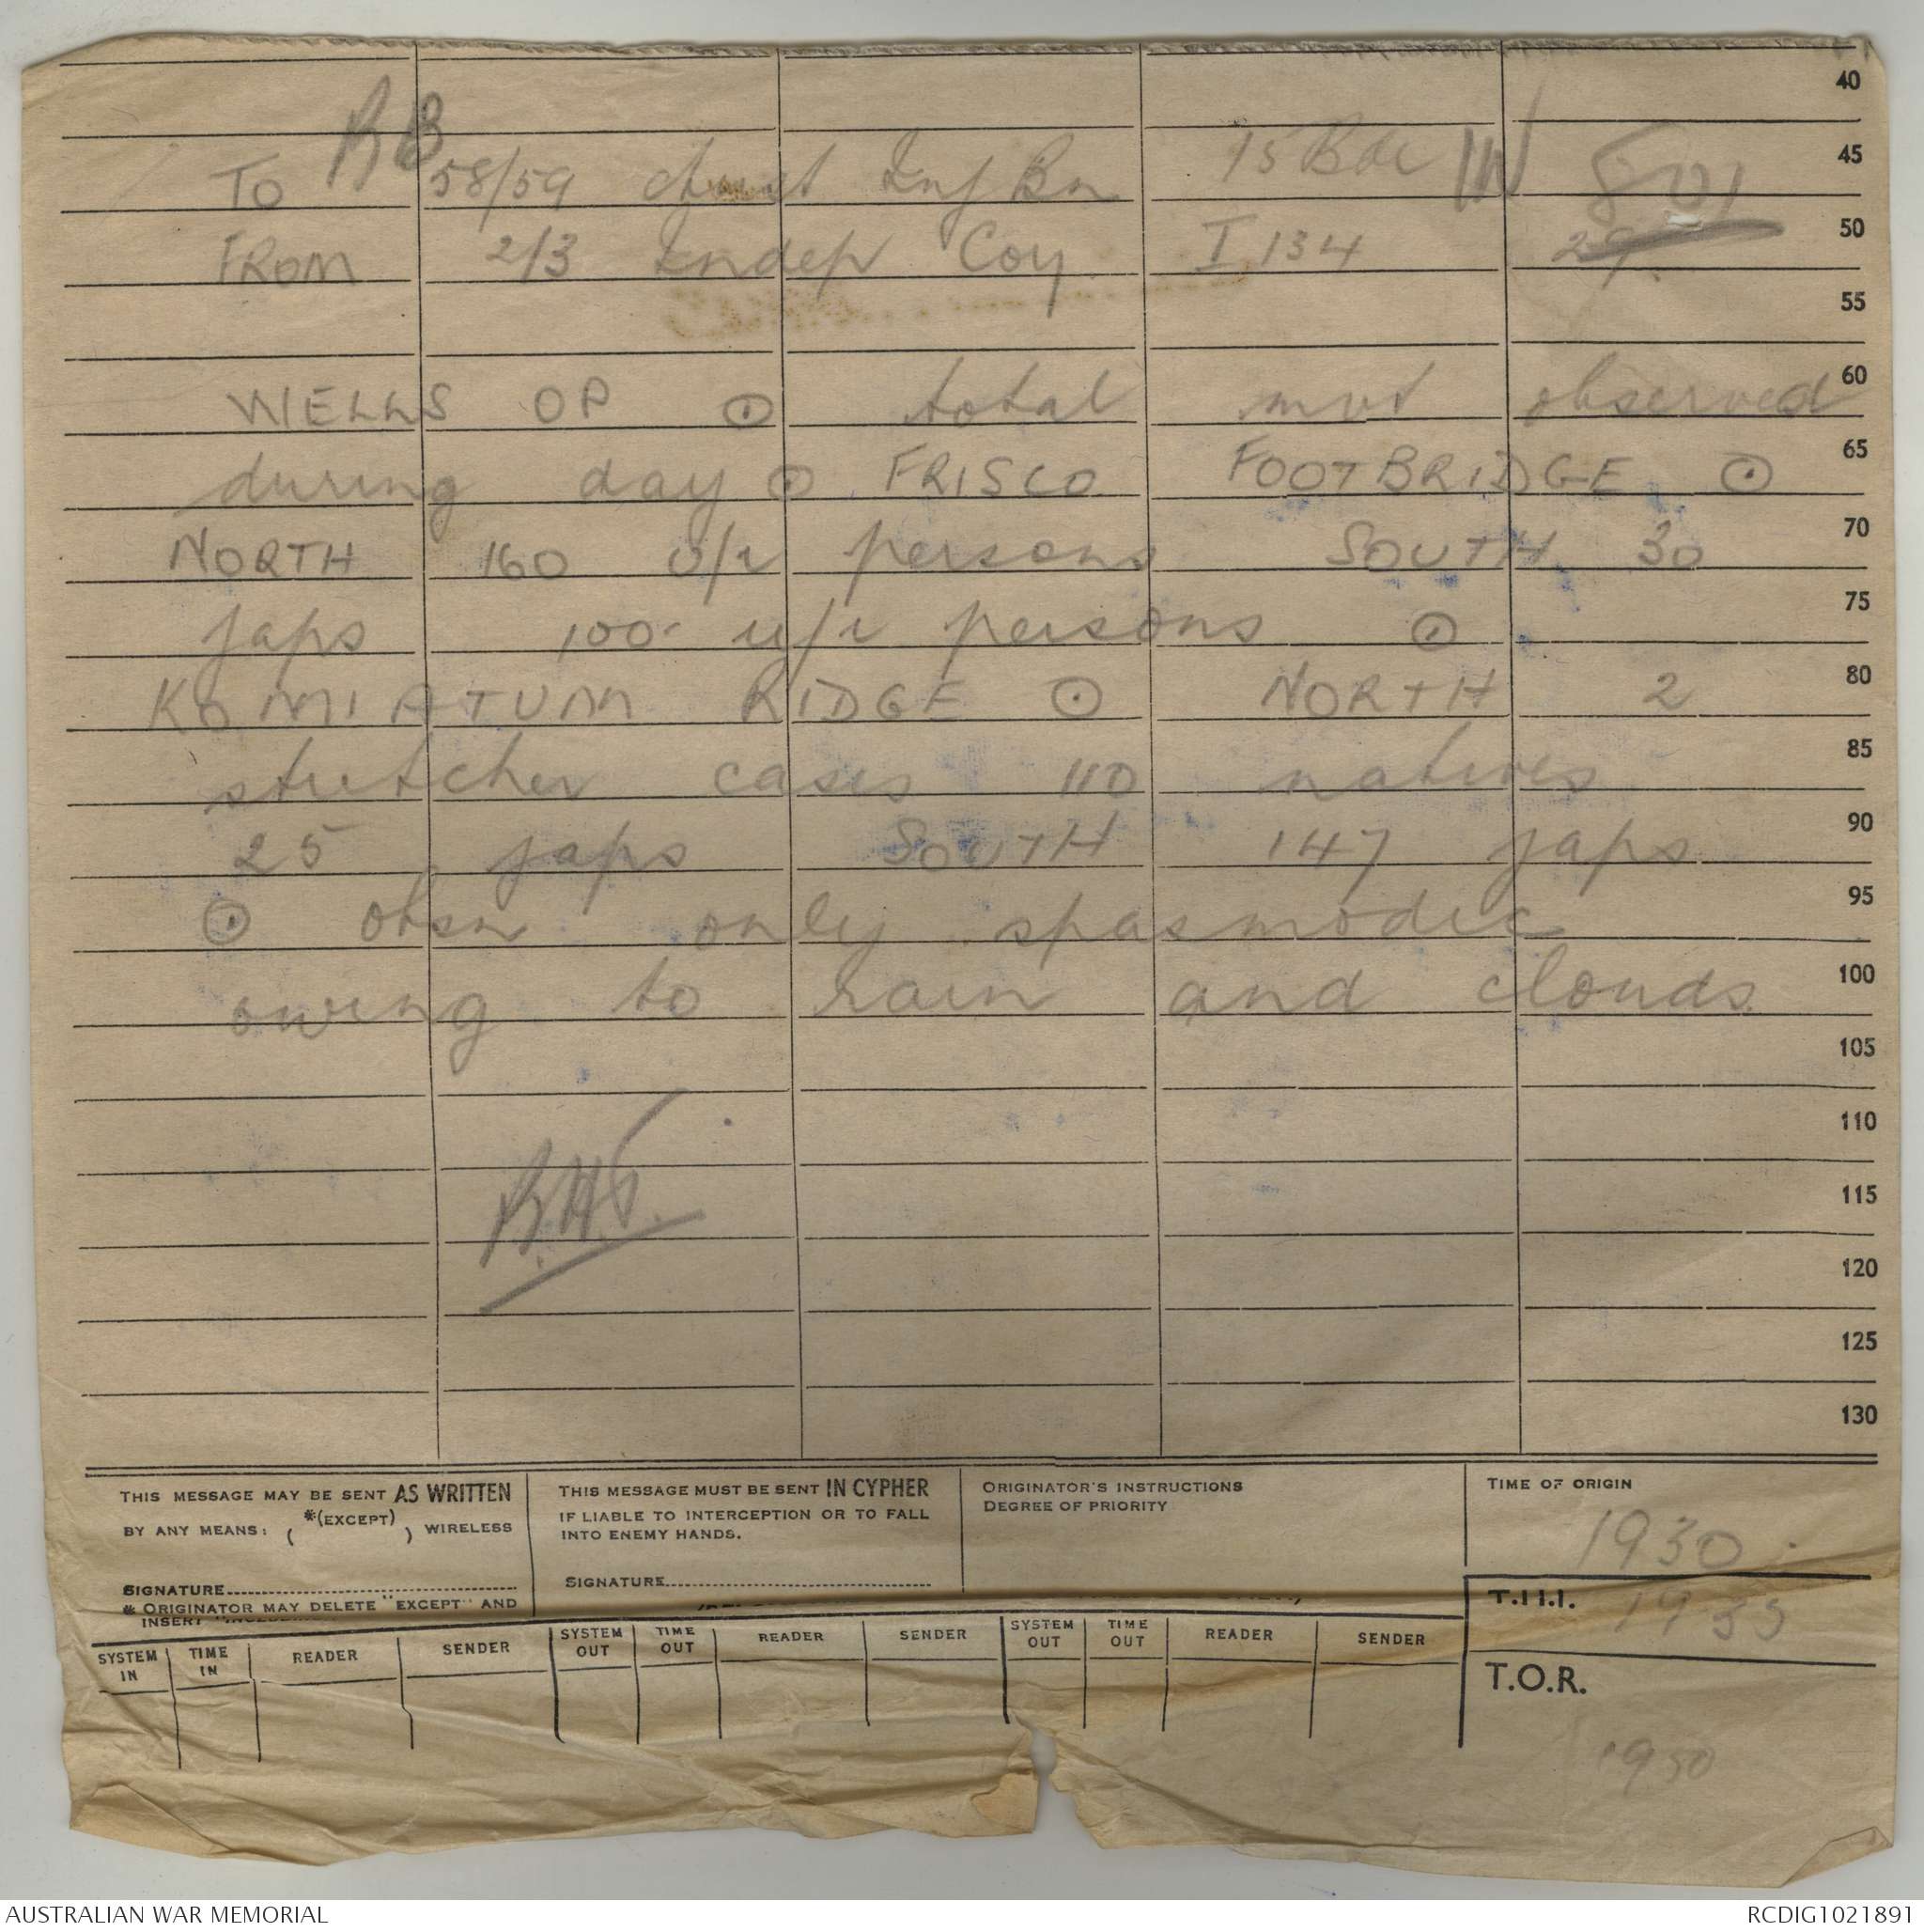 40
RB
TO 58/59 Aust Inf Bn 15 Bde IN 801
45
FROM 2/3 Indep Coy I 134 29.
50
55
WELLS OP ⊙ total mvt observed
60
during day ⊙ FRISCO FOOTBRIDGE ⊙
65
NORTH 160 u/i persons SOUTH 30
70
japs 100 u/i persons ⊙
75
KOMIATUM RIDGE ⊙ NORTH 2
80
stretcher cases 110 natives
85
25 japs SOUTH 147 japs
90
⊙ obsn only spasmodic
95
owing to rain and clouds.
100
105
110
115
120
125
130
THIS MESSAGE MAY BE SENT AS WRITTEN
BY ANY MEANS: ( *(EXCEPT) ) WIRELESS
SIGNATURE
* ORIGINATOR MAY DELETE "EXCEPT" AND
INSERT
THIS MESSAGE MUST BE SENT IN CYPHER
IF LIABLE TO INTERCEPTION OR TO FALL
INTO ENEMY HANDS.
SIGNATURE
ORIGINATOR'S INSTRUCTIONS
DEGREE OF PRIORITY
TIME OF ORIGIN
1930
T.H.I. 1935
SYSTEM IN TIME IN READER SENDER SYSTEM OUT TIME OUT READER SENDER SYSTEM OUT TIME OUT READER SENDER
T.O.R.
1950
AUSTRALIAN WAR MEMORIAL RCDIG1021891